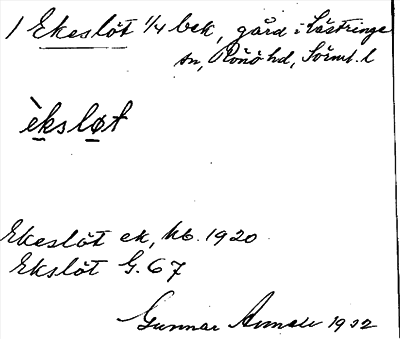 1 Ekeslöt 1/4 bek, gård i Lästringe
sn, Rönö hd, Sörml. l
èksløt
Ekeslöt ek, kb. 1920
Ekslöt G. 67
Gunnar 1932